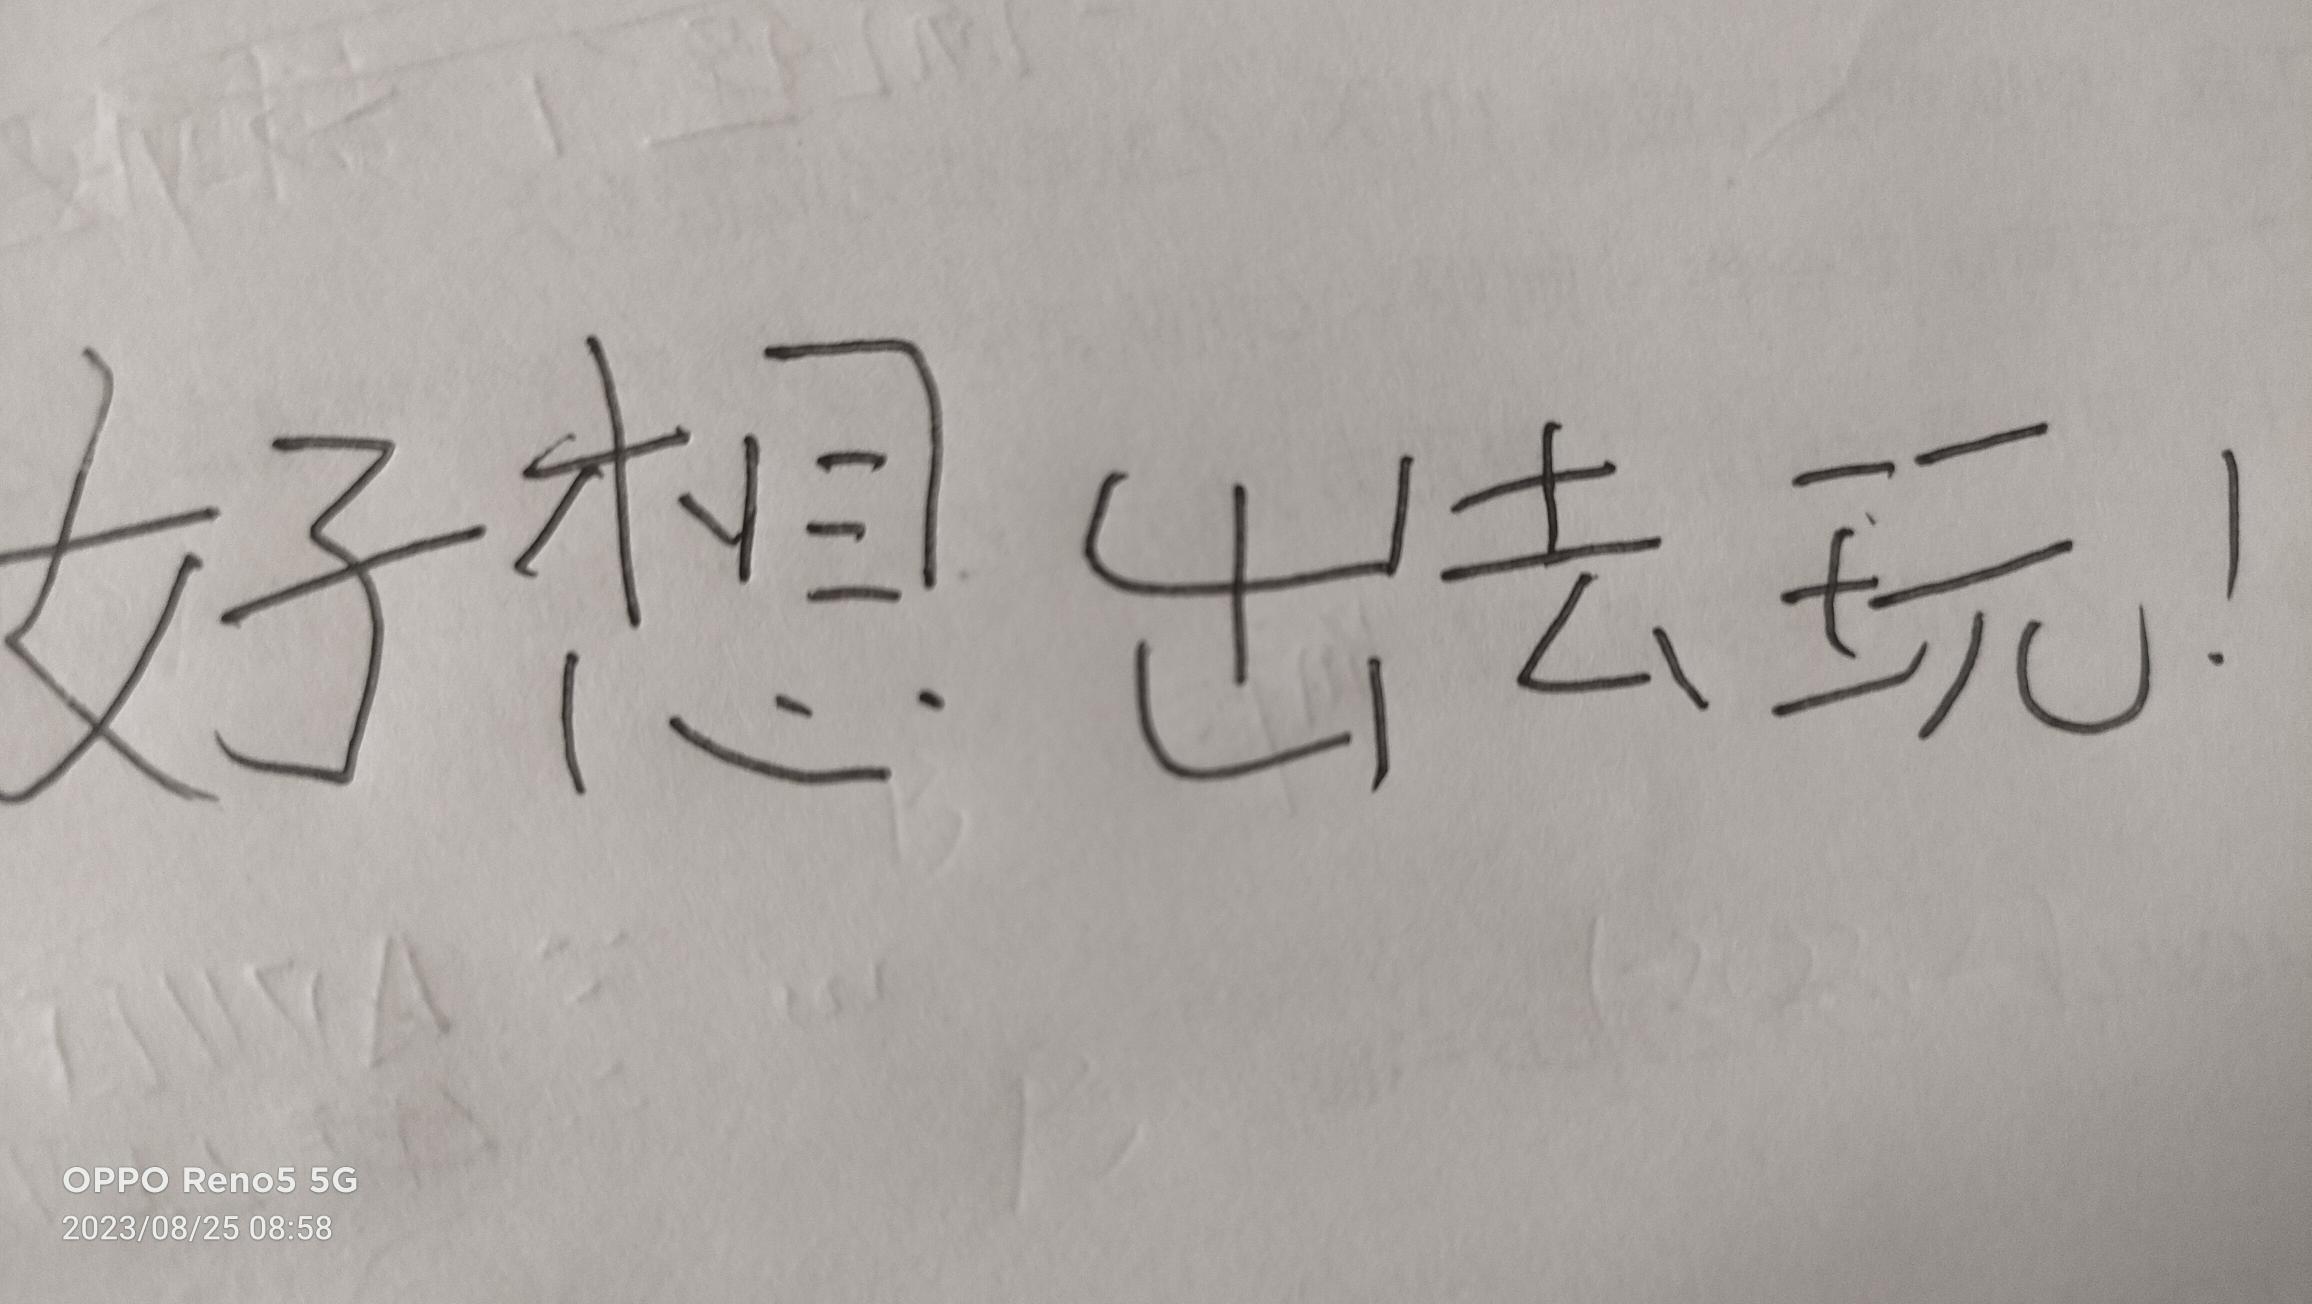 好想出去玩!
OPPO Reno5 5G
2023/08/25 08:58